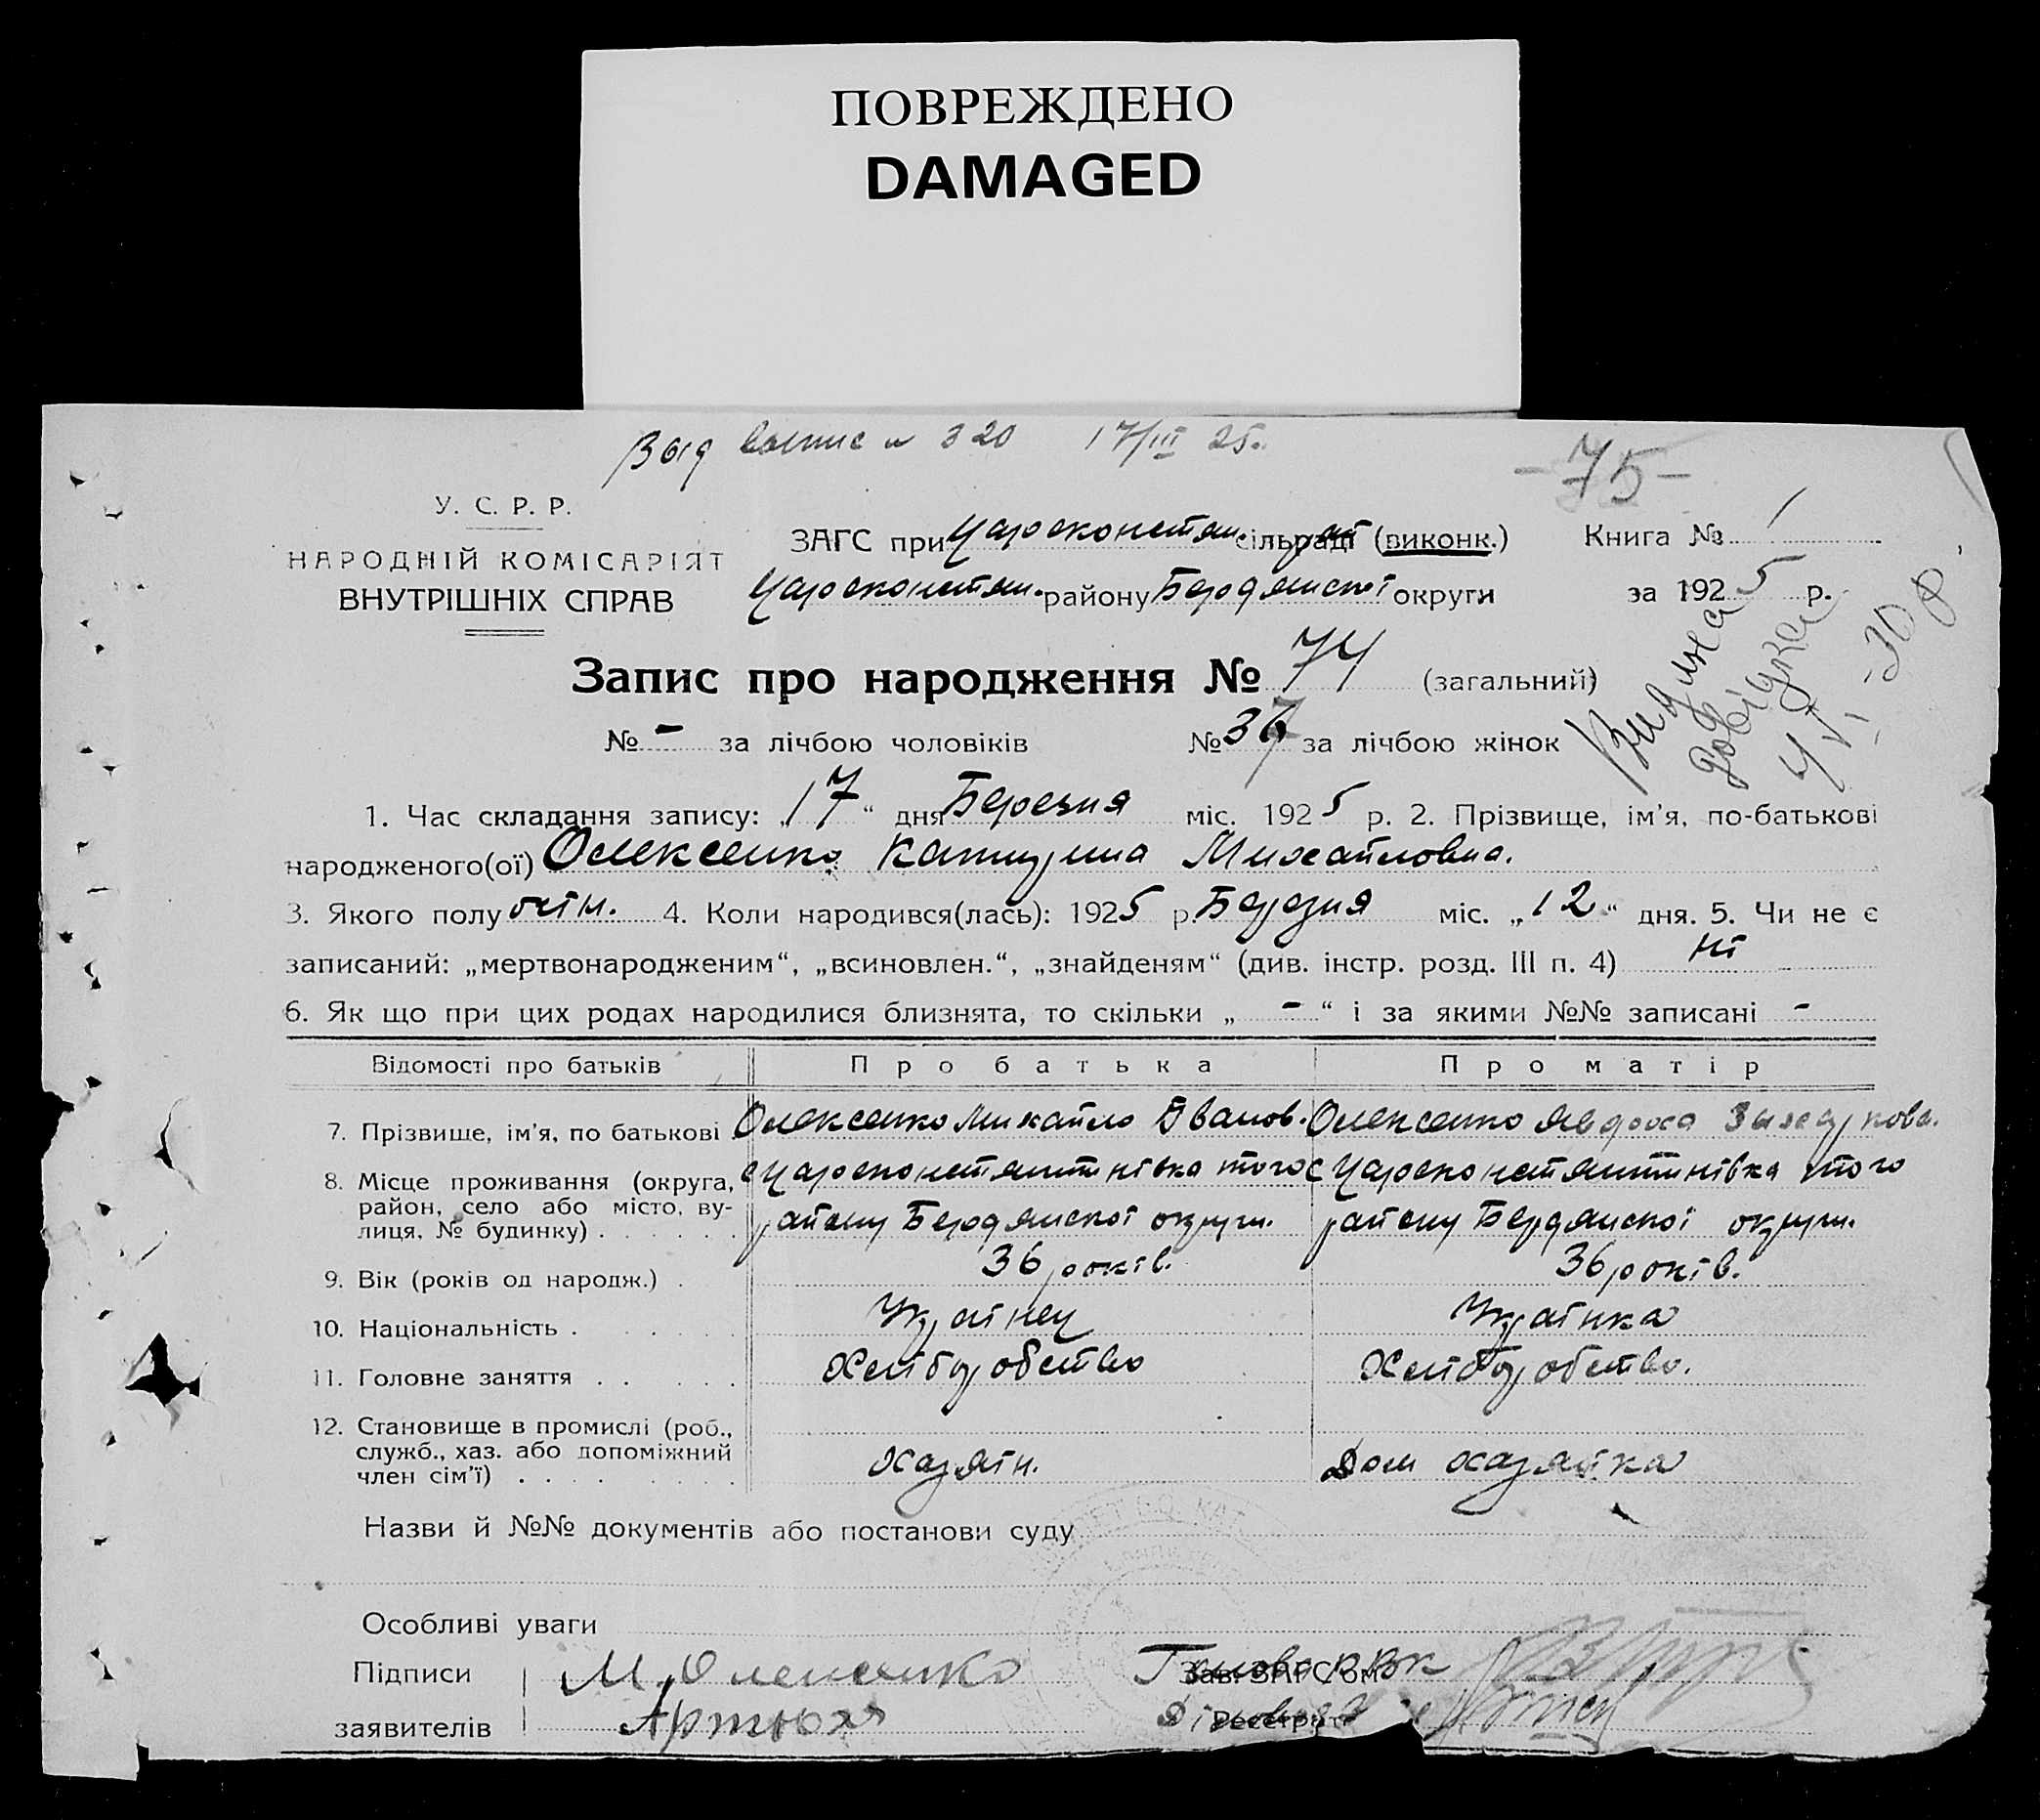 ПОВРЕЖДЕНО
DAMAGED
320 17/III 25.
-75-
У. С. Р. Р.
НАРОДНІЙ КОМІСАРІЯТ
ВНУТРІШНІХ СПРАВ
ЗАГС при Царосконстян. сільраді (виконк.)
Книга № 1
Царосконстян. району Бердянської округи
за 1925 р.
Видана
довідка
Запис про народження № 74 (загальний)
№ - за лічбою чоловіків № 37 за лічбою жінок
1. Час складання запису: „17“ дня Березня міс. 1925 р. 2. Прізвище, ім'я, по-батькові
народженого(ої) Олексенко Катерина Михайловна.
3. Якого полу 4. Коли народився(лась): 1925 р. Березня міс. „12“ дня. 5. Чи не є
записаний: „мертвонародженим“, „всиновлен.“, „знайденям“ (див. інстр. розд. III п. 4) ні
6. Як що при цих родах народилися близнята, то скільки „ - “ і за якими №№ записані -
Відомості про батьків Про батька Про матір
7. Прізвище, ім'я, по батькові Олексенко Михайло Іванов. Олексенко Явдоха
8. Місце проживання (округа, район, село або місто, вулиця, № будинку) с Царосконстянтинівка того району Бердянської округи. с Царосконстянтинівка того району Бердянської округи.
9. Вік (років од народж.) 36 років. 36 років.
10. Національність Українец Українка
11. Головне заняття Хліборобство Хліборобство.
12. Становище в промислі (роб., служб., хаз. або допоміжний член сім'ї) Хазяїн. Дом хазяйка
Назви й №№ документів або постанови суду
Особливі уваги
Підписи М. Олексенко Голова РВК
заявителів Артюхя